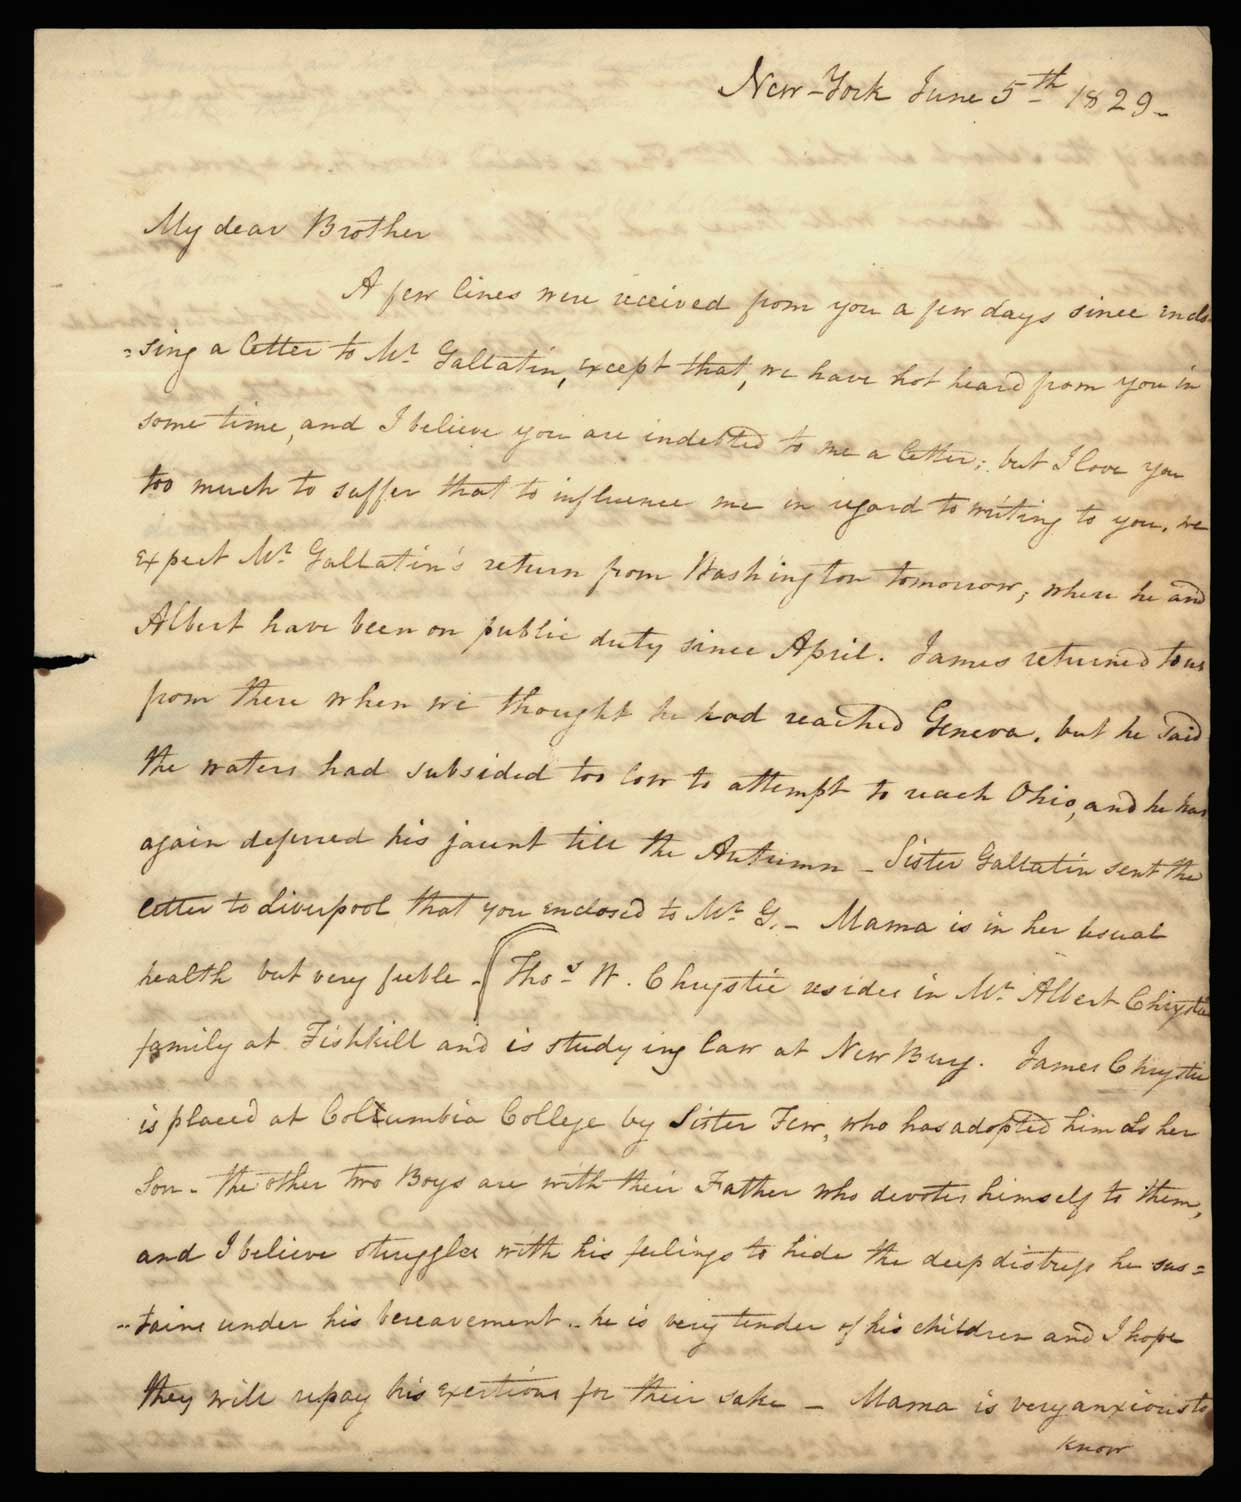 New-York June 5th 1829-
My dear Brother
A few lines were received from you a few days since enclo
=sing a letter to Mr Gallatin, except that, we have not heard from you in
some time, and I believe you are indebted to me a letter; but I love you
too much to suffer that to influence me in regard to writing to you. we
expect Mr Gallatin's return from Washington tomorrow, where he and
Albert have been on public duty since April. James returned to us
from there when we thought he had reached Geneva. but he said
the waters had subsided too low to attempt to reach Ohio, and he has
again deferred his jaunt till the Autumn - Sister Gallatin sent the
letter to Liverpool that you enclosed to Mr G. - Mama is in her usual
health but very feeble - (Thos W. Chrystie resides in Mr Albert Chrystie
family at Fishkill and is studying law at New Burg. James Chrystie
is placed at Columbia College by Sister Few, who has adopted him as her
Son - the other two Boys are with their Father who devotes himself to them,
and I believe struggles with his feelings to hide the deep distress he sus=
=tains under his bereavement - he is very tender of his children and I hope
they will repay his exertions for their sake - Mama is very anxious to
know